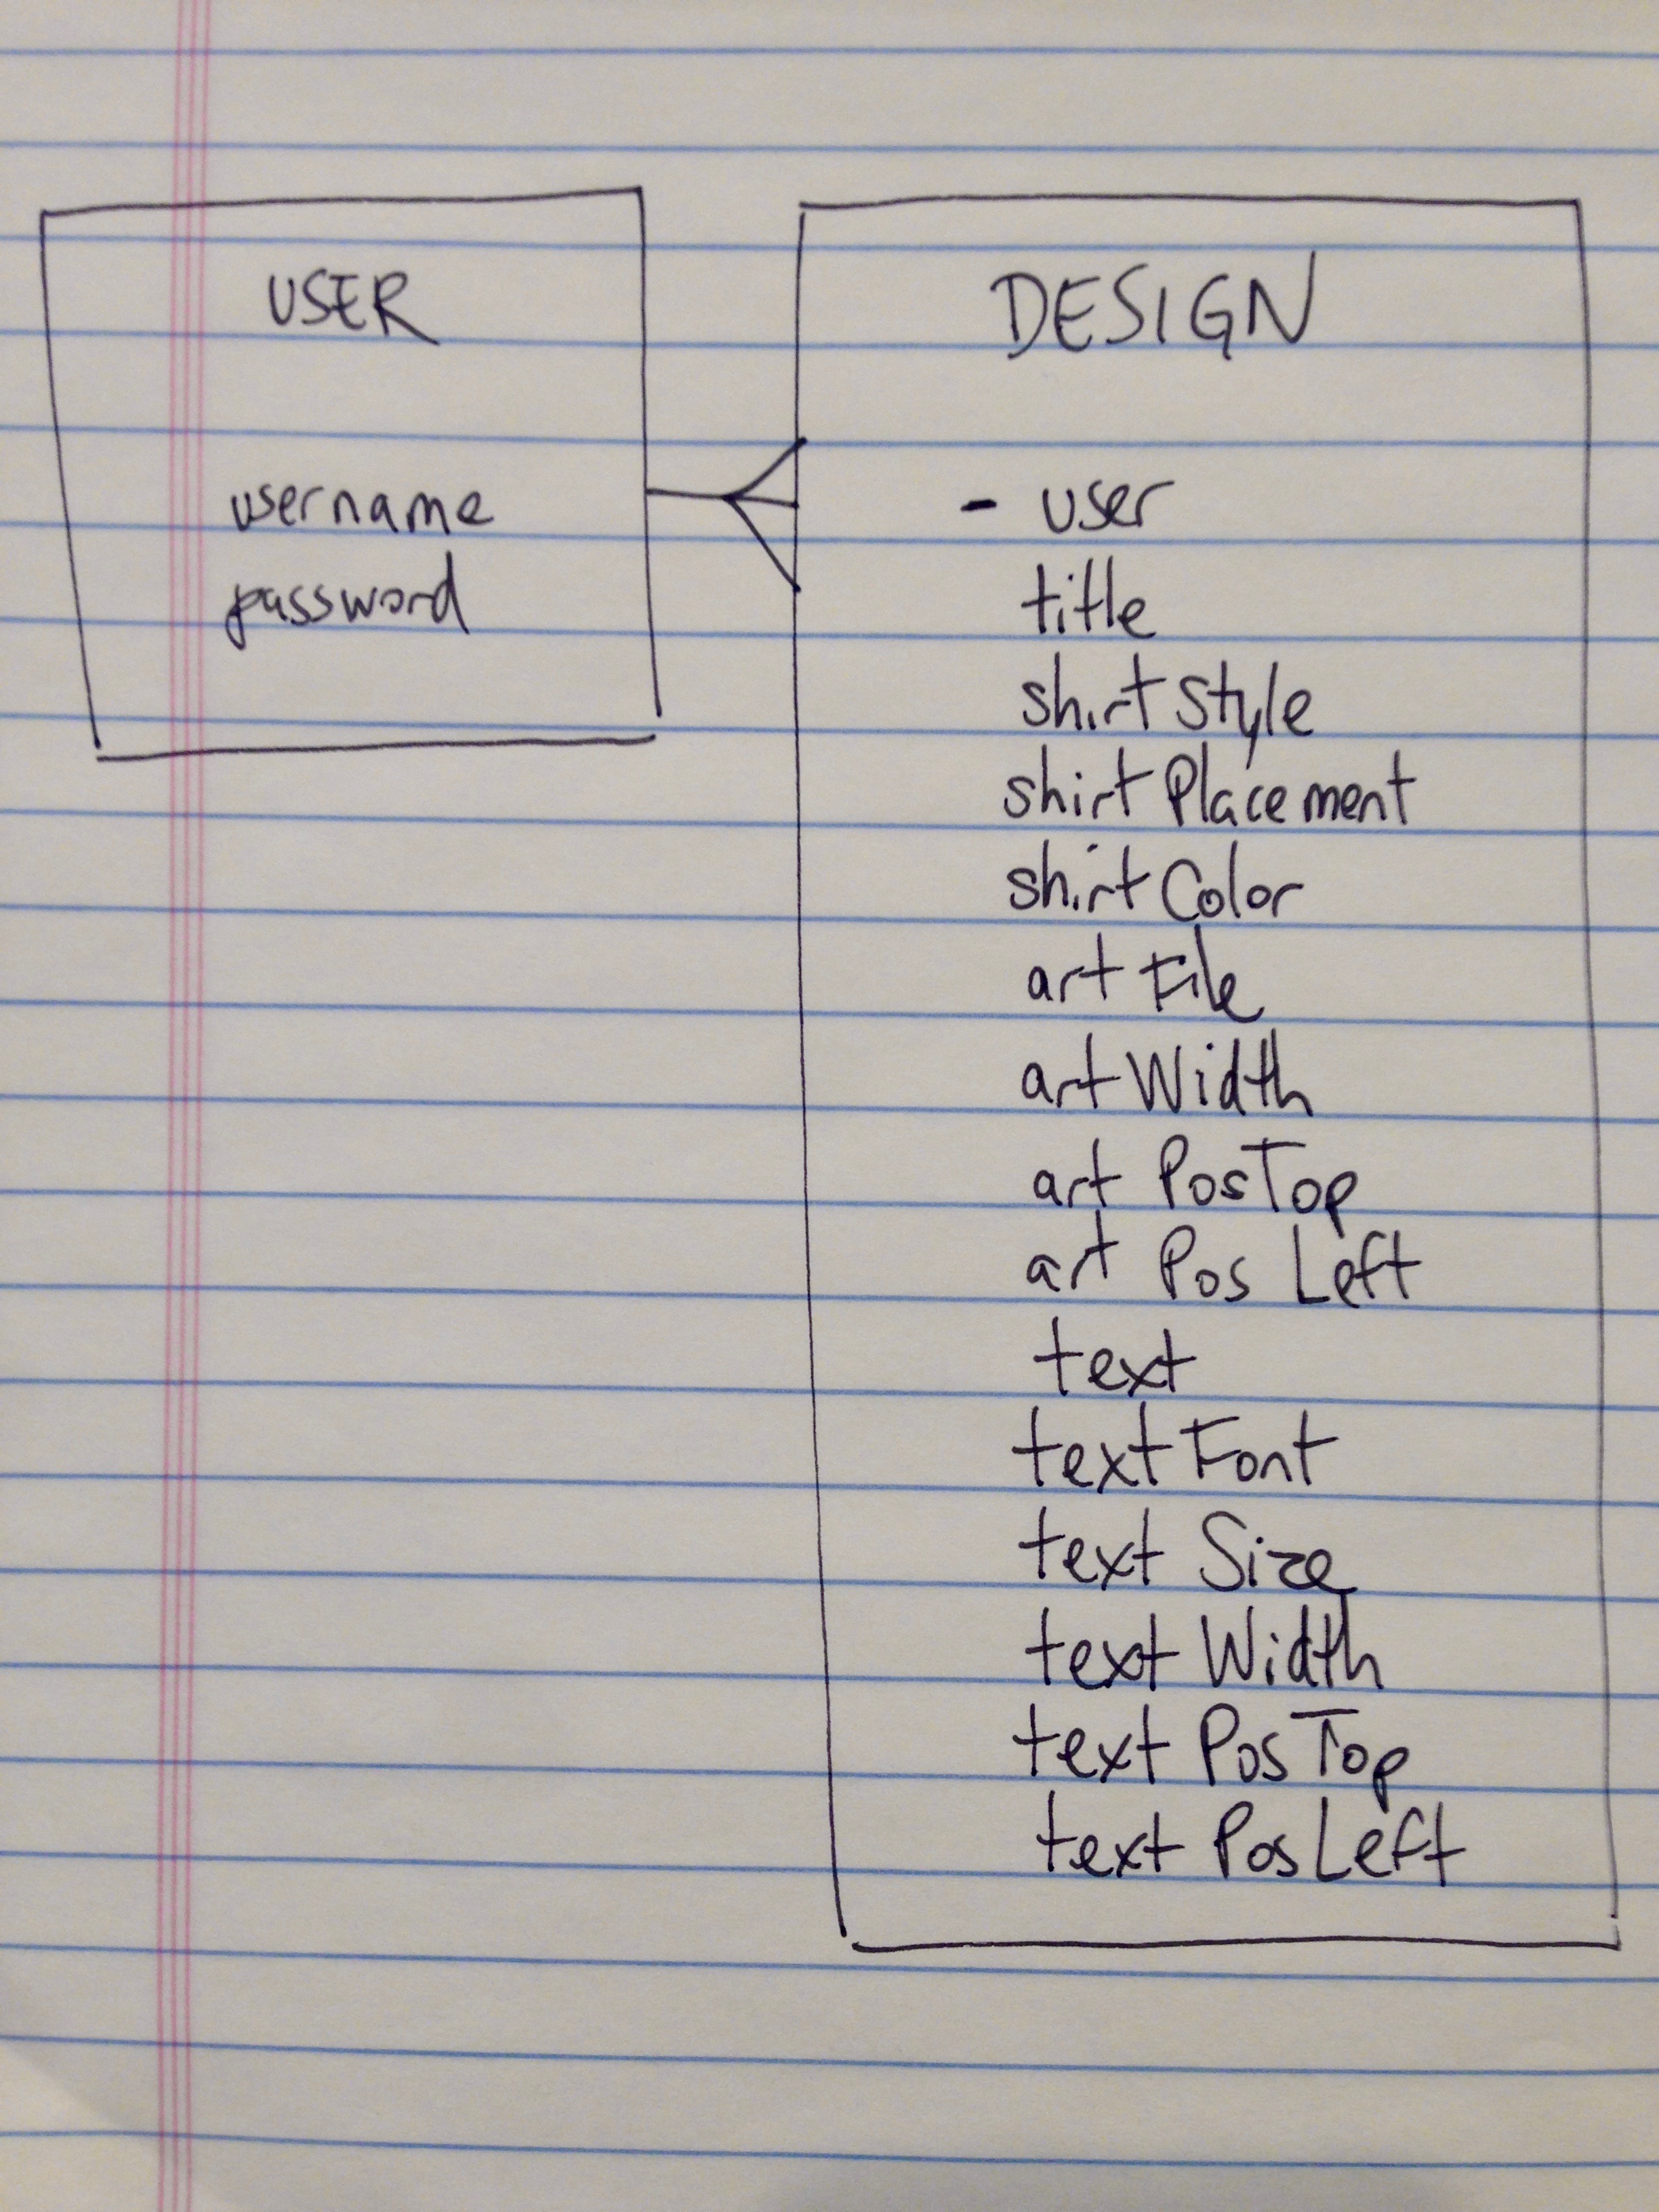 USER
username
password
DESIGN
- user
title
shirtStyle
shirtPlacement
shirtColor
artFile
artWidth
artPosTop
artPosLeft
text
textFont
textSize
textWidth
textPosTop
textPosLeft